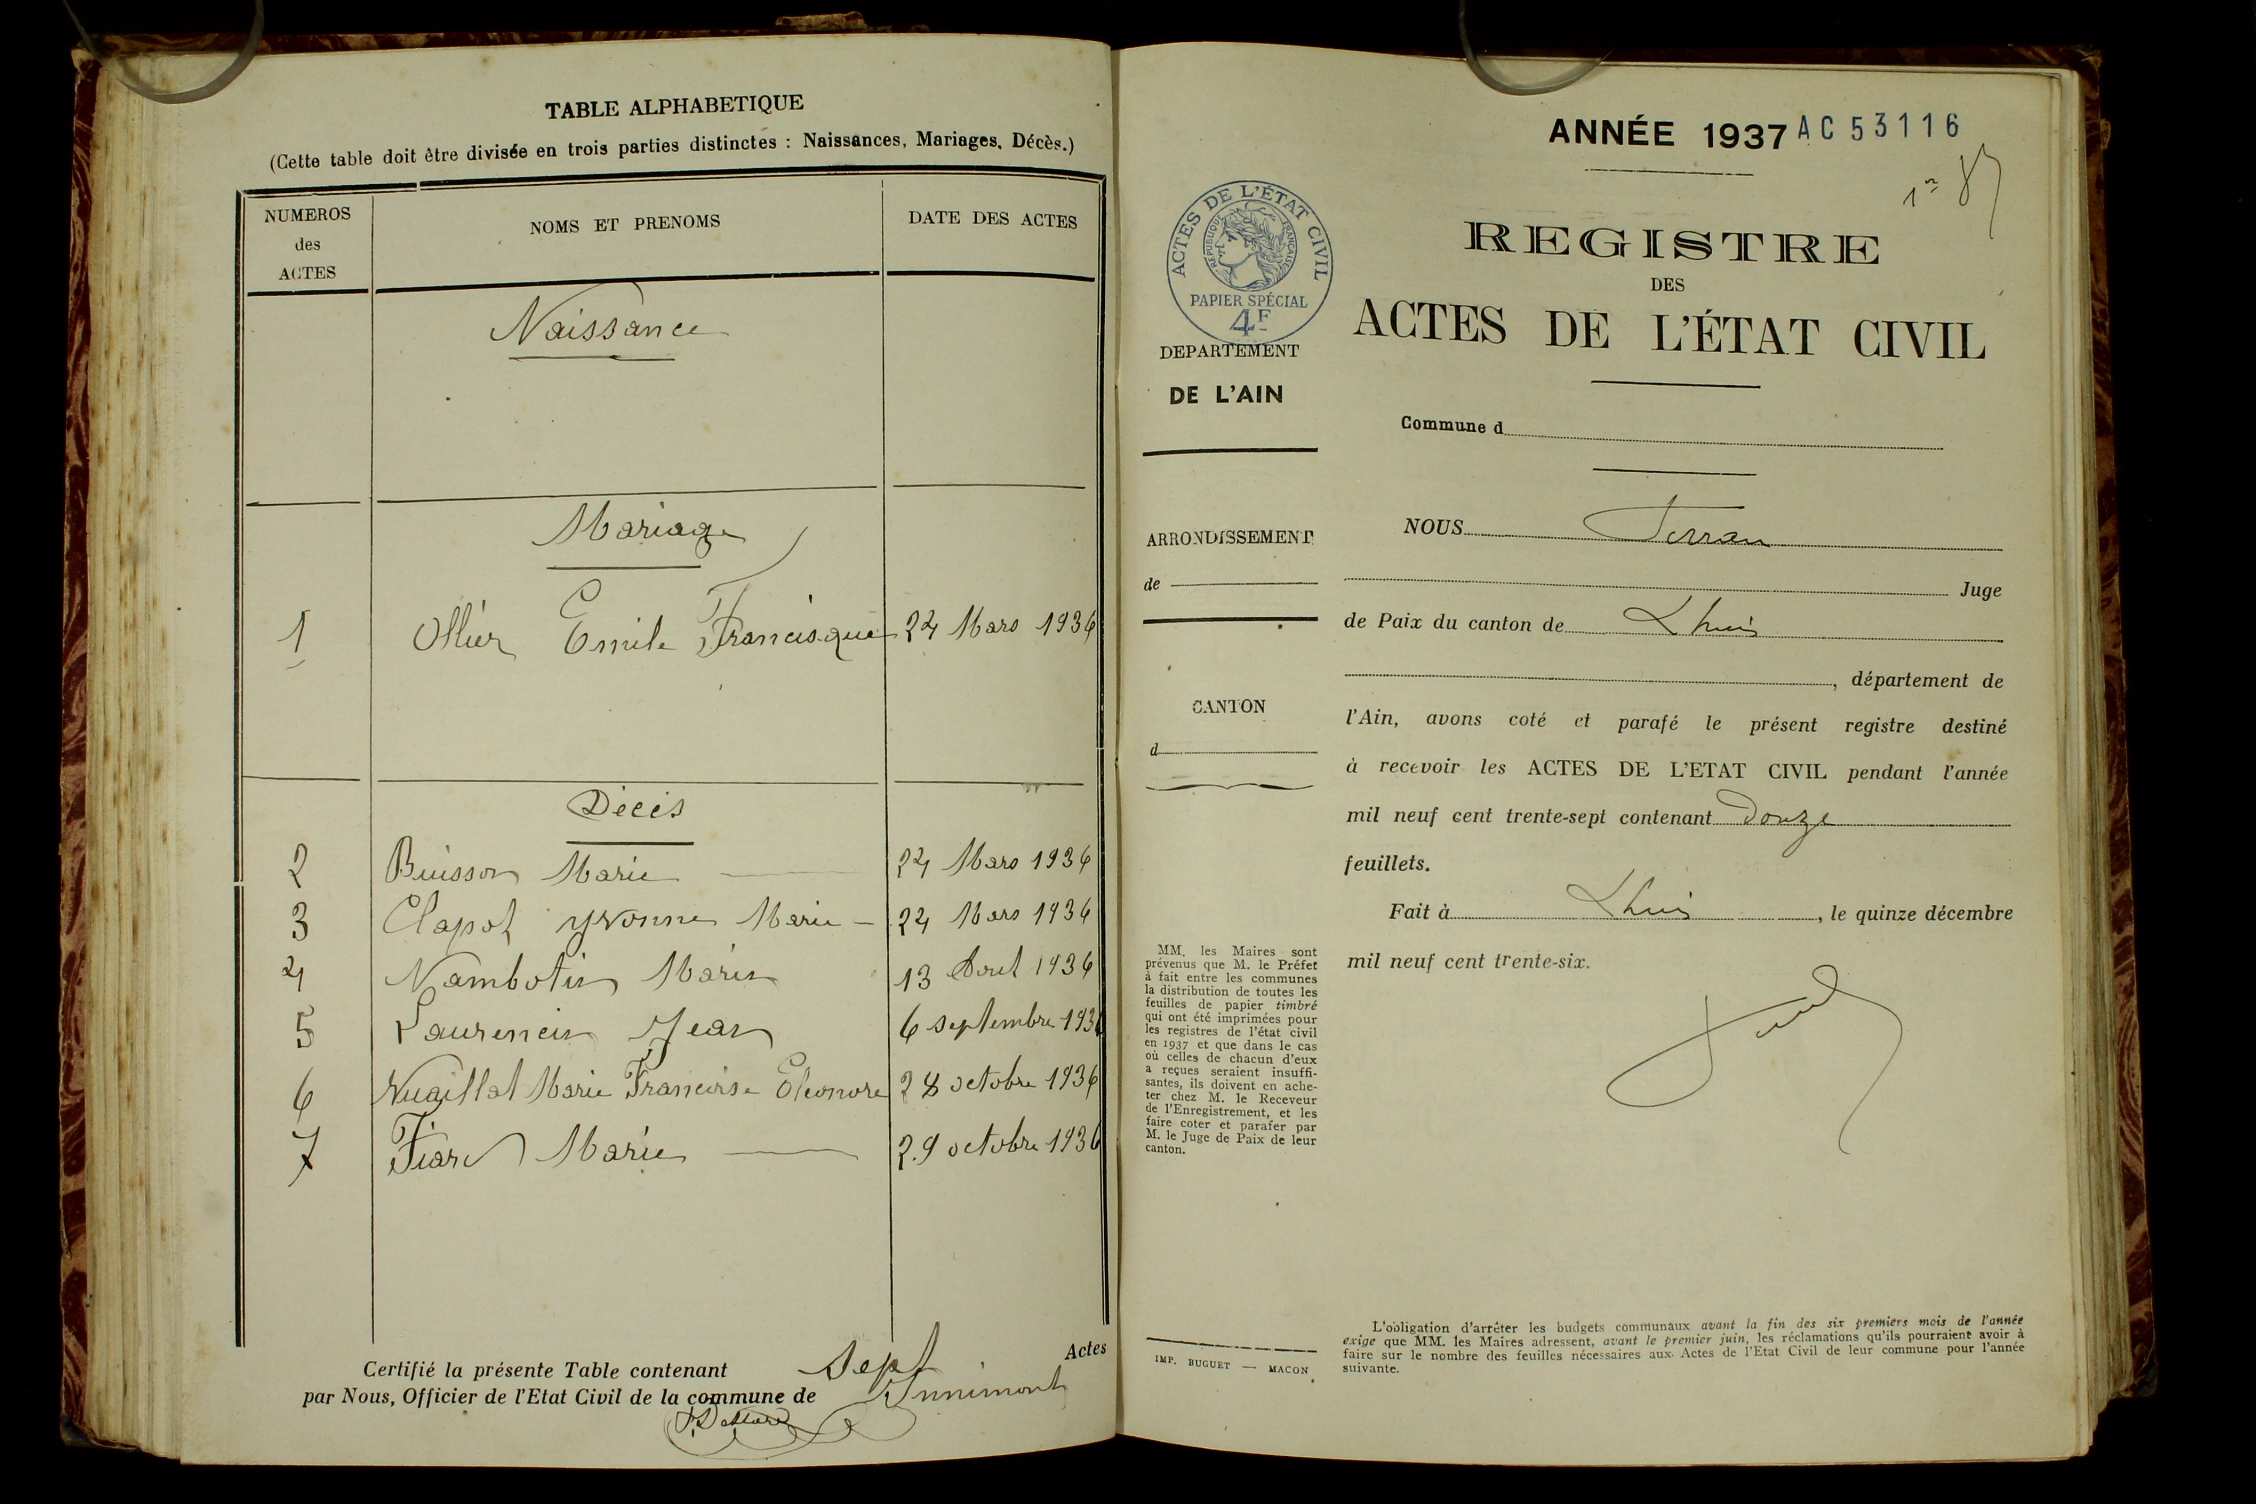 TABLE ALPHABETIQUE
(Cette table doit être divisée en trois parties distinctes : Naissances, Mariages, Décès.)
NUMEROS
des
ACTES
NOMS ET PRENOMS
DATE DES ACTES
Naissance
Mariage
1 Ollier Emile Francisque 24 Mars 1936
Décès
2 Buisson Marie 24 Mars 1936
3 Clapot Yvonne Marie 24 Mars 1936
4 Nambotin Marie 13 Aout 1936
5 Laurencin Jean 6 septembre 1936
6 Nugillat Marie Francoise Eleonore 28 octobre 1936
7 Marie 29 octobre 1936
Certifié la présente Table contenant Sept Actes
par Nous, Officier de l'Etat Civil de la commune de Innimont
ANNÉE 1937 AC 53116
1er
ACTES DE L'ÉTAT CIVIL
RÉPUBLIQUE FRANÇAISE
PAPIER SPÉCIAL
4F
REGISTRE
DES
ACTES DE L'ÉTAT CIVIL
DEPARTEMENT
DE L'AIN
Commune d
ARRONDISSEMENT
de
CANTON
d
NOUS
Juge
de Paix du canton de Lhuis
, département de
l'Ain, avons coté et parafé le présent registre destiné
à recevoir les ACTES DE L'ETAT CIVIL pendant l'année
mil neuf cent trente-sept contenant Douze
feuillets.
Fait à Lhuis, le quinze décembre
mil neuf cent trente-six.
MM. les Maires sont
prévenus que M. le Préfet
a fait entre les communes
la distribution de toutes les
feuilles de papier timbré
qui ont été imprimées pour
les registres de l'état civil
en 1937 et que dans le cas
où celles de chacun d'eux
a reçues seraient insuffi-
santes, ils doivent en ache-
ter chez M. le Receveur
de l'Enregistrement, et les
faire coter et parafer par
M. le Juge de Paix de leur
canton.
IMP. BUGUET — MACON
L'obligation d'arrêter les budgets communaux avant la fin des six premiers mois de l'année
exige que MM. les Maires adressent, avant le premier juin, les réclamations qu'ils pourraient avoir à
faire sur le nombre des feuilles nécessaires aux Actes de l'Etat Civil de leur commune pour l'année
suivante.